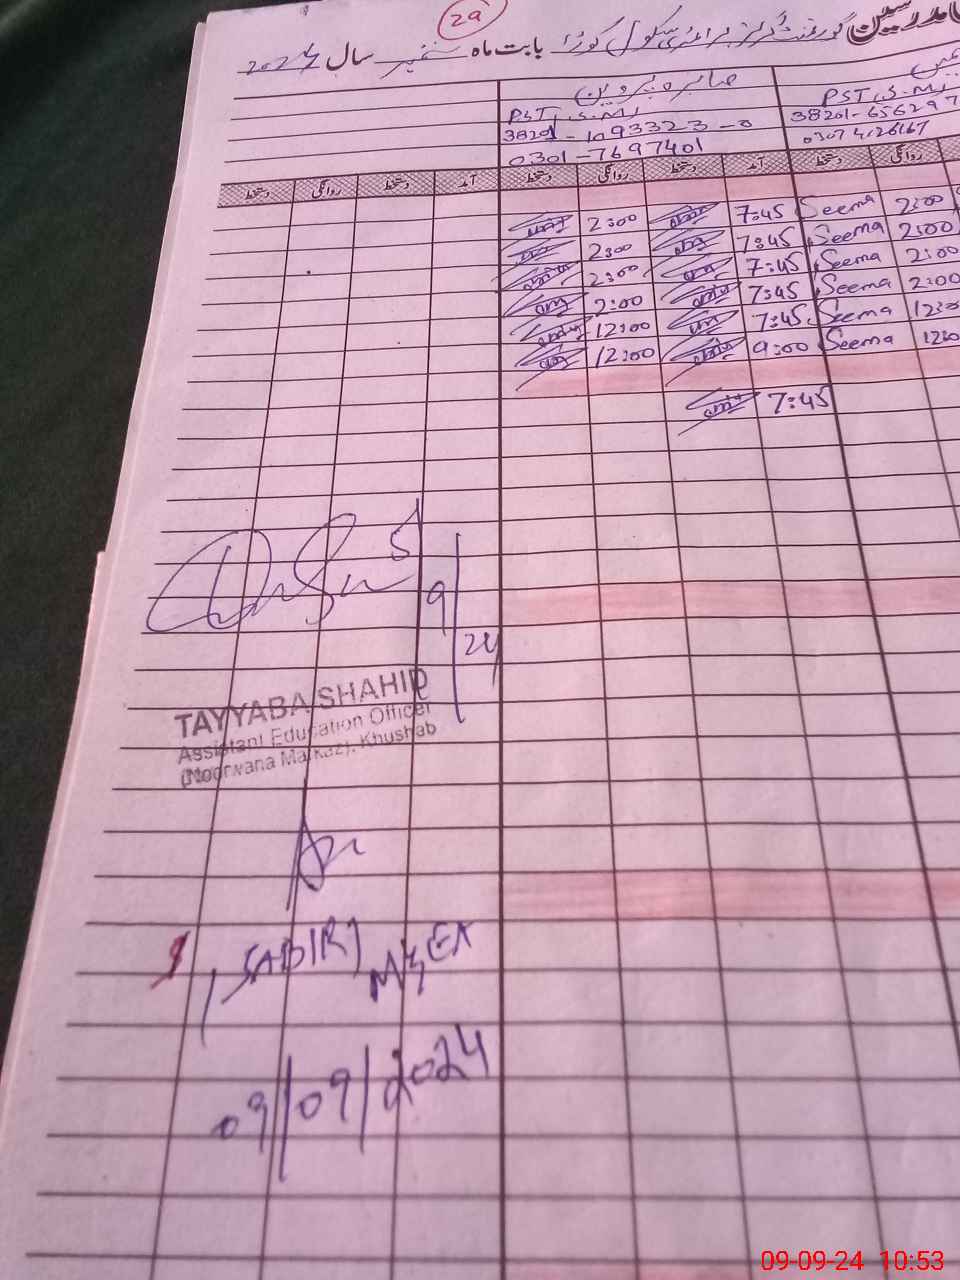 29
مدرسین گورنمنٹ گرلز پرائمری سکول کوڑا بابت ماہ ستمبر سال 2024
صابرہ پروین
PST, S.M,
PST, S.M,
38201-1093323-0
38201-656297
0301-7697401
0307 4126167
دستخط روانگی دستخط آمد دستخط روانگی دستخط آمد دستخط روانگی
2:00 7:45 Seema 2:00
2:00 7:45 Seema 2:00
2:00 7:45 Seema 2:00
2:00 7:45 Seema 2:00
12:00 7:45 Seema 12:0
12:00 9:00 Seema 12:0
7:45
5/9/24
TAYYABA SHAHID
Assistant Education Officer
(Noorwana Markaz), Khushab
SADIR) M&EA
09/09/2024
09-09-24 10:53